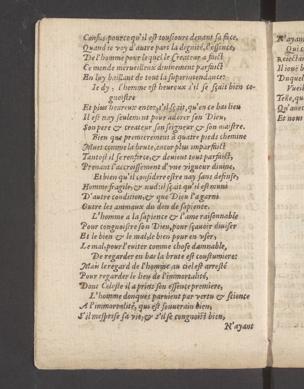 Confus, pource qu'il est tousiours deuant sa face.
Quand ie voy d'autre part la dignité, l'essence,
De l'homme pour lequel le Createur a faict
Ce monde merueilleux diuinement parfaict
En luy baillant de tout la superintendance:
Ie dy, l'homme est heureux s'il se sçait bien co-
gnoistre
Et plus heureux encor, s'il sçait, qu'en ce bas lieu
Il est nay seulement pour adorer son Dieu,
Son pere & createur son seigneur & son maistre.
Bien que premierement à quatre pieds chemine
Muet comme la brute, encor plus imparfaict
Tantost il se renforce, & deuient tout parfaict,
Prenant l'accroissement d'vne vigueur diuine,
Et bien qu'il considere estre nay sans defense,
Homme fragile, & nud: il sçait qu'il est muni
D'autre condition, & que Dieu l'a garni
Outre les animaux du don de sapience.
L'homme a la sapience & l'ame raisonnable
Pour congnoistre son Dieu, pour sçauoir diuiser
Et le bien & le mal, le bien pour en vser,
Le mal, pour l'euiter comme chose damnable,
De regarder en bas la brute est coustumiere:
Mais le regard de l'homme au ciel est arresté
Pour regarder le lieu de l'immortalité,
Dont Celeste il a prins son essence premiere,
L'homme donques paruient par vertu & science
A l'immortalité, qui est souuerain bien,
S'il mesprise sa vie, & s'il se congnoist bien,
N'ayant
N'ayant
Qu'auec
Et nous